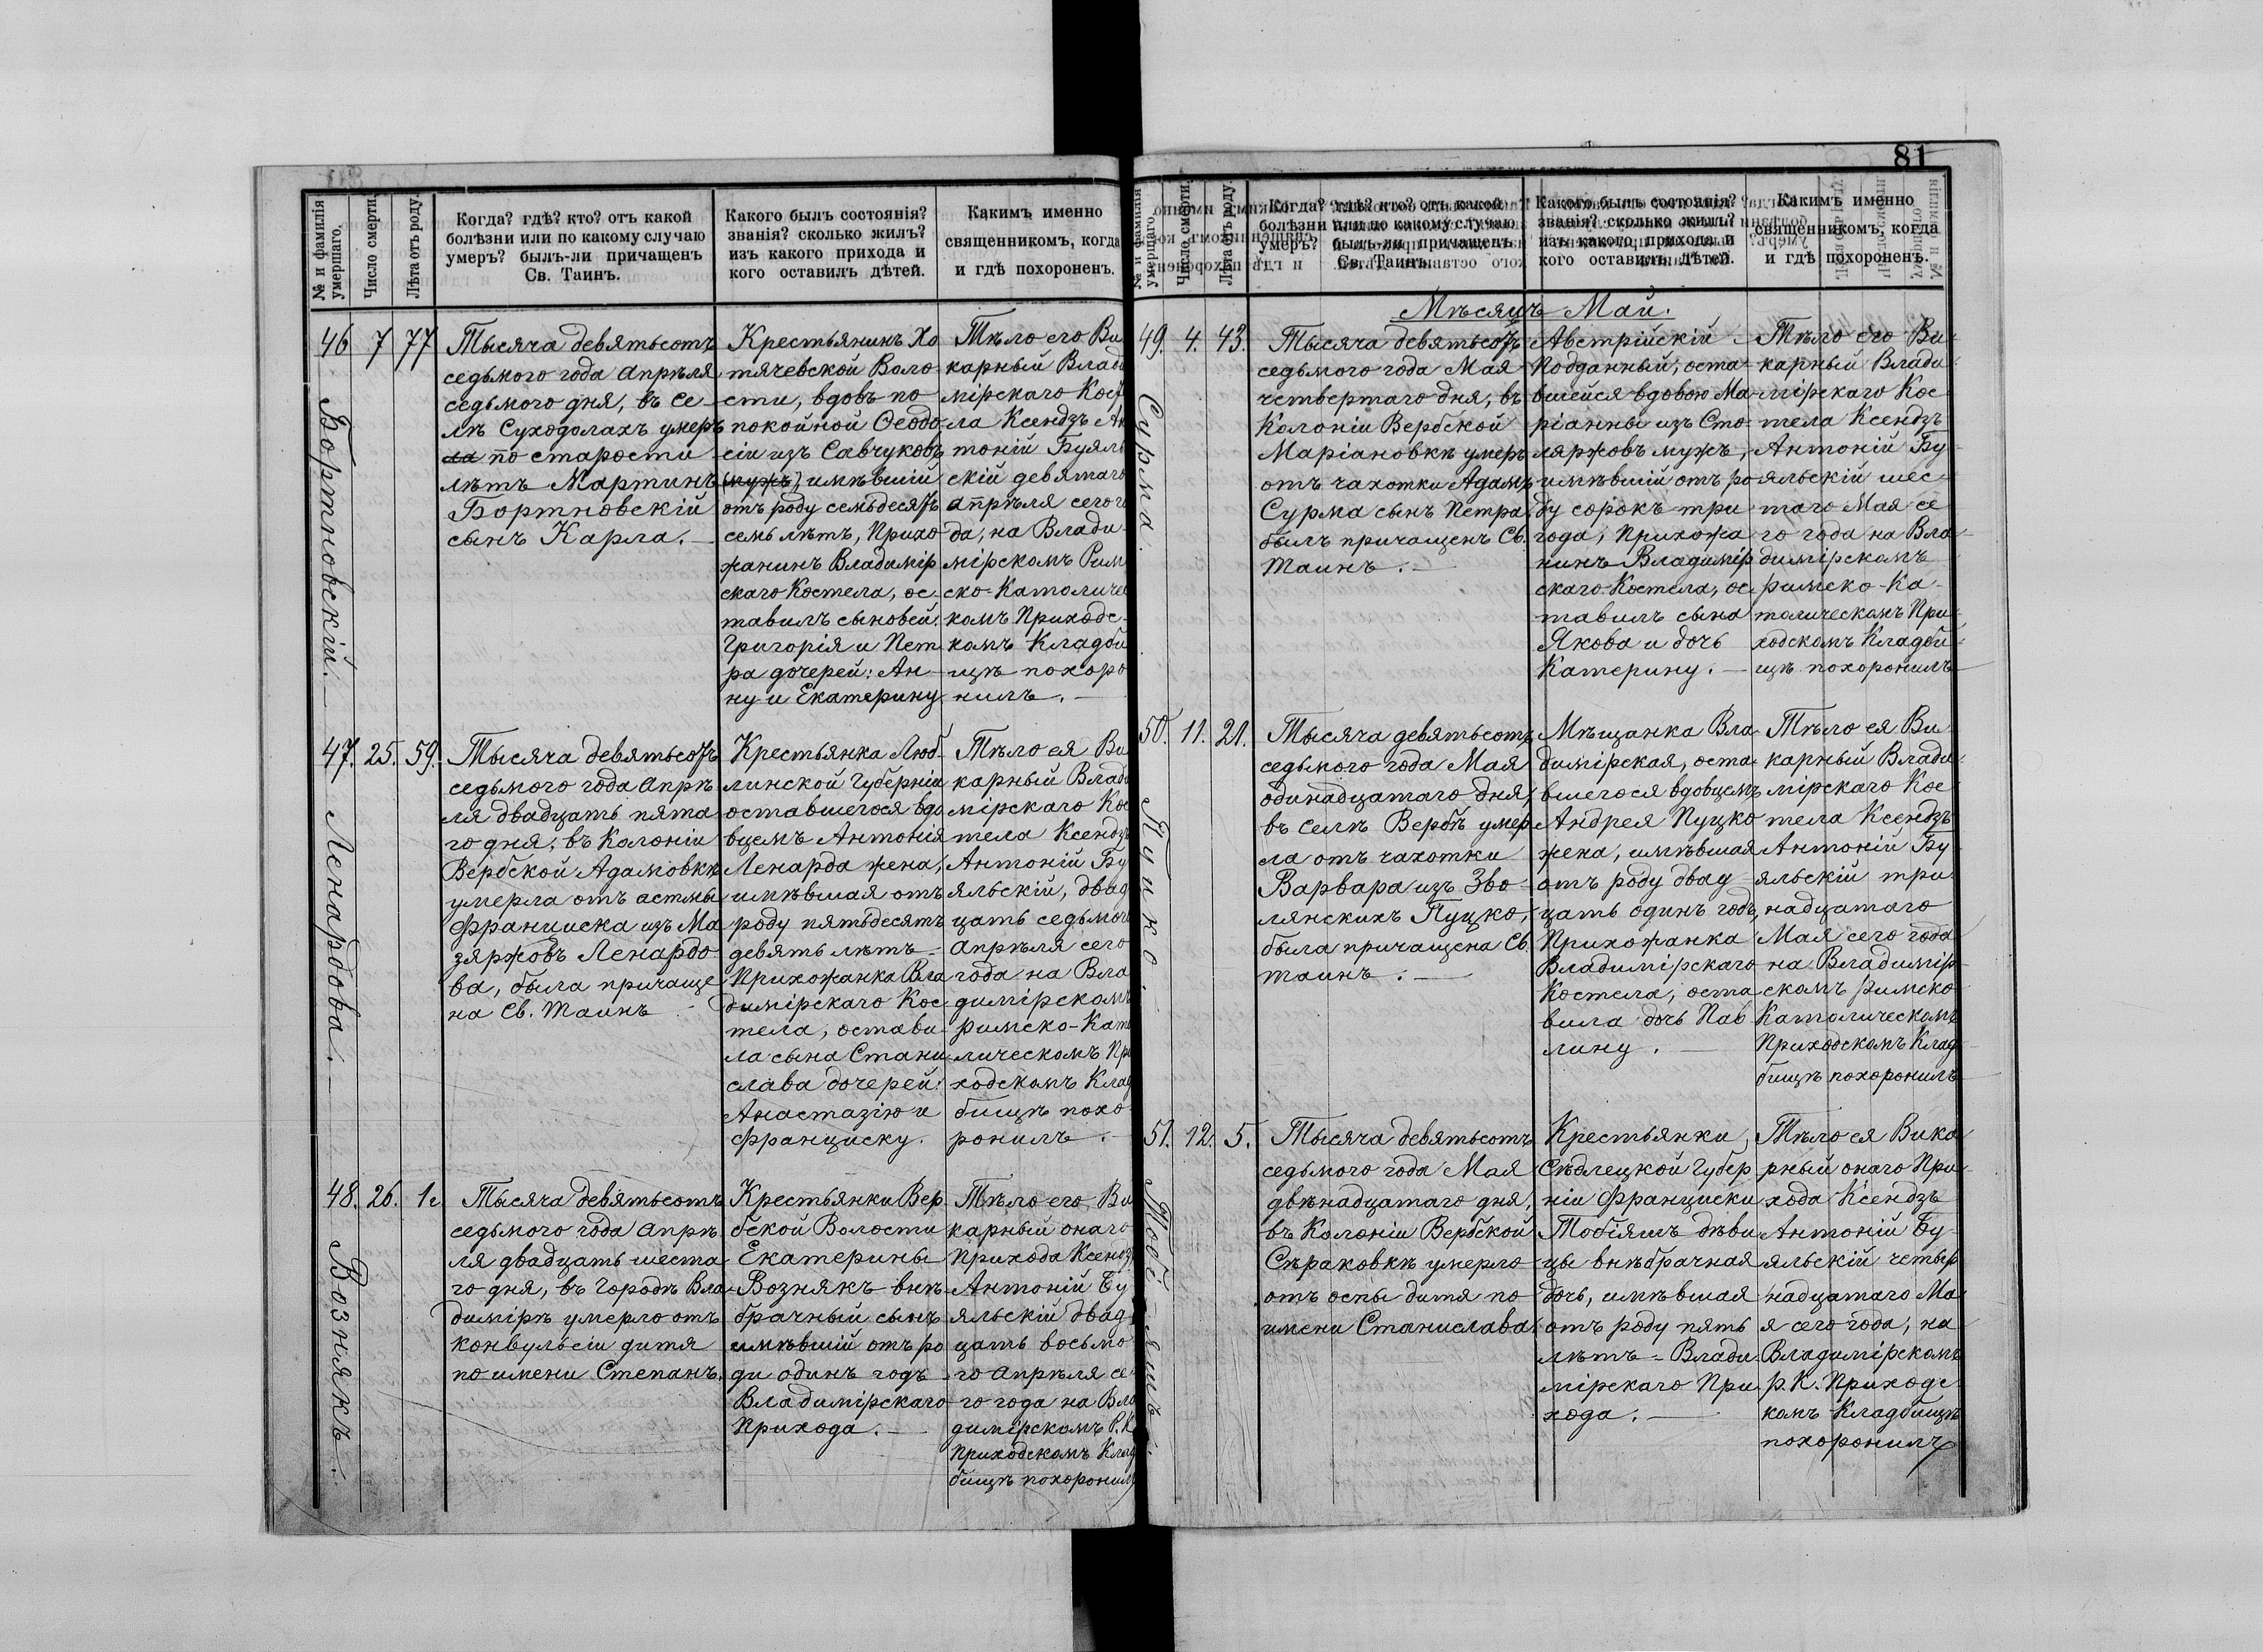 № и фамилія умершаго.
Число смерти.
Лѣта отъ роду.
Когда? гдѣ? кто? отъ какой
болѣзни или по какому случаю
умеръ? былъ-ли причащенъ
Св. Таинъ.
Какого былъ состоянія?
званія? сколько жилъ?
изъ какого прихода и
кого оставилъ дѣтей.
Какимъ именно
священникомъ, когда
и гдѣ похороненъ.
46 7 77
Бортновскій.
Тысяча девятьсотъ
седьмого года Апрѣля
седьмого дня, въ се-
лѣ Суходолахъ умеръ
ла по старости
лѣтъ Мартинъ
Бортновскій
сынъ Карла.
Крестьянинъ Хо
тячевской Воло
сти, вдовъ по
покойной Ѳеодо-
сіи изъ Савчуковъ
(мужъ), имѣвшій
отъ роду семьдесятъ
семь лѣтъ, Прихо
жанинъ Владимір
скаго Костела, ос
тавилъ сыновей:
Григорія и Пет
ра дочерей: Ан
ну и Екатерину
Тѣло его Ви
карный Влади
мірскаго Кост
ла Ксендзъ Ан
тоній Буяль
скій девятаго
Апрѣля сего го
да, на Влади-
мірскомъ Рим
ско-Католичес
комъ Приходс-
комъ Кладби
щѣ похоро
нилъ.
47. 25. 59.
Ленардова.
Тысяча девятьсотъ
седьмого года Апрѣ
ля двадцать пята
го дня, въ Колоніи
Вербской Адамовкѣ
умерла отъ астмы
Франциска изъ Ма
зяржовъ Ленардо
ва, была причаще
на Св. Таинъ
Крестьянка Люб-
линской Губерніи
оставшегося вдо
вцемъ Антонія
Ленарда жена,
имѣвшая отъ
роду пятьдесятъ
девять лѣтъ
Прихожанка Вла
димірскаго Кос
тела, остави
ла сына Стани
слава дочерей:
Анастазію и
Франциску.
Тѣло ея Ви
карный Влади
мірскаго Кос
тела Ксендзъ
Антоній Бу
яльскій, двад
цать седьмого
Апрѣля сего
года на Вла
димірскомъ
римско-Като
лическомъ При
ходскомъ Клад
бищѣ похо
ронилъ.
48. 26. 1г
Вознякъ.
Тысяча девятьсотъ
седьмого года Апрѣ
ля двадцать шеста
го дня, въ Городѣ Вла
димірѣ умерло отъ
конвульсіи дитя
по имени Степанъ.
Крестьянки Вер
бской Волости
Екатерины
Вознякъ внѣ
брачный сынъ
имѣвшій отъ ро
ди одинъ годъ
Владимірскаго
Прихода.
Тѣло его Ви
карный онаго
Прихода Ксендзъ
Антоній Бу
яльскій двад
цать восьмо
го Апрѣля се
го года на Вла
димірскомъ Р.К.
Приходскомъ Клад
бищѣ похоронилъ
81
№ и фамилія умершаго.
Число смерти.
Лѣта отъ роду.
Когда? гдѣ? кто? отъ какой
болѣзни или по какому случаю
умеръ? былъ-ли причащенъ
Св. Таинъ.
Какого былъ состоянія?
званія? сколько жилъ?
изъ какого прихода и
кого оставилъ дѣтей.
Какимъ именно
священникомъ, когда
и гдѣ похороненъ.
Мѣсяцъ Май.
49. 4. 43.
Сурма.
Тысяча девятьсотъ
седьмого года Мая
четвертаго дня, въ
Колоніи Вербской
Маріановкѣ умеръ
отъ чахотки Адамъ
Сурма сынъ Петра,
былъ причащенъ Св.
Таинъ.
Австрійскій
Подданный, оста-
вшейся вдовою Ма-
ріанны изъ Сто
ляржовъ мужъ,
имѣвшій отъ ро
ду сорокъ три
года, Прихожа
нинъ Владимір
скаго Костела, ос
тавилъ сына
Якова и дочь
Катерину.
Тѣло его Ви-
карный Влади-
мірскаго Кос
тела Ксендзъ
Антоній Бу-
яльскій шес-
таго Мая се
го года на Вла
димірскомъ
римско-Ка-
толическомъ При-
ходскомъ Кладби-
щѣ похоронилъ
50. 11. 21.
Пуцко.
Тысяча девятьсотъ
седьмого года Мая
одинадцатаго дня,
въ селѣ Вербѣ умер
ла отъ чахотки
Варвара изъ Зво-
лянскихъ Пуцко,
была причащена Св.
таинъ.
Мѣщанка Вла
димірская, оста
вшегося вдовцемъ
Андрея Пуцко
жена, имѣвшая
отъ роду двад
цать одинъ годъ,
Прихожанка
Владимірскаго
Костела, оста
вила дочь Пав
лину.
Тѣло ея Ви
карный Влади-
мірскаго Кос
тела Ксендзъ
Антоній Бу
яльскій три
надцатаго
Мая сего года
на Владимір
скомъ Римско
Католическомъ
Приходскомъ Клад
бищѣ похоронилъ
51. 12. 5.
Тысяча девятьсотъ
седьмого года Мая
двѣнадцатаго дня,
въ Колоніи Вербской
Сѣраковкѣ умерло
отъ оспы дитя по
имени Станислава.
Крестьянки
Сѣдлецкой Губер
ніи Франциски
Тобіяшъ дѣви
цы внѣбрачная
дочь, имѣвшая
отъ роду пять
лѣтъ - Влади
мірскаго При
хода.
Тѣло ея Вика
рный онаго При
хода Ксендзъ
Антоній Бу-
яльскій четыр
надцатаго Ма
я сего года, на
Владимірскомъ
Р.К. Приходс
комъ Кладбищѣ
похоронилъ